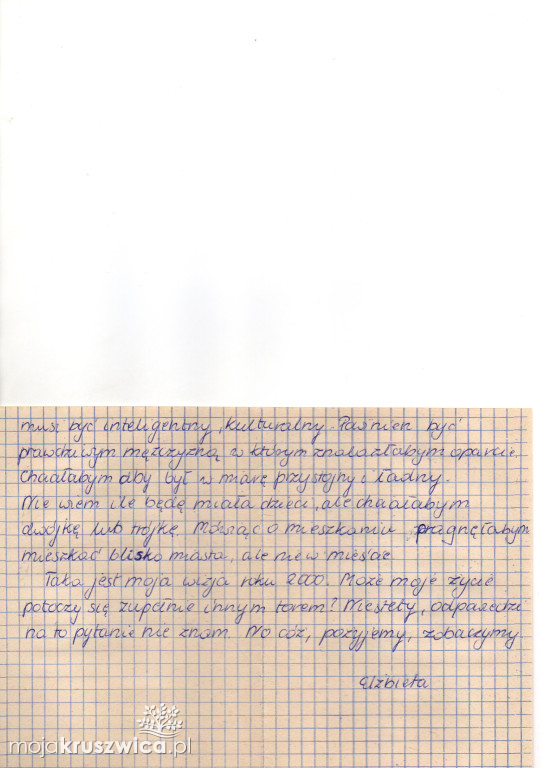 musi być inteligentny, kulturalny. Powinien być
prawdziwym mężczyzną w którym znalazłabym oparcie.
Chciałabym aby był w miarę przystojny i ładny.
Nie wiem ile będę miała dzieci, ale chciałabym
dwójkę lub trójkę. Mówiąc o mieszkaniu, pragnęłabym
mieszkać blisko miasta, ale nie w mieście.
Taka jest moja wizja roku 2000. Może moje życie
potoczy się zupełnie innym torem? Niestety, odpowiedzi
na to pytanie nie znam. No cóż, pożyjemy, zobaczymy.
Elżbieta
mojakruszwica.pl